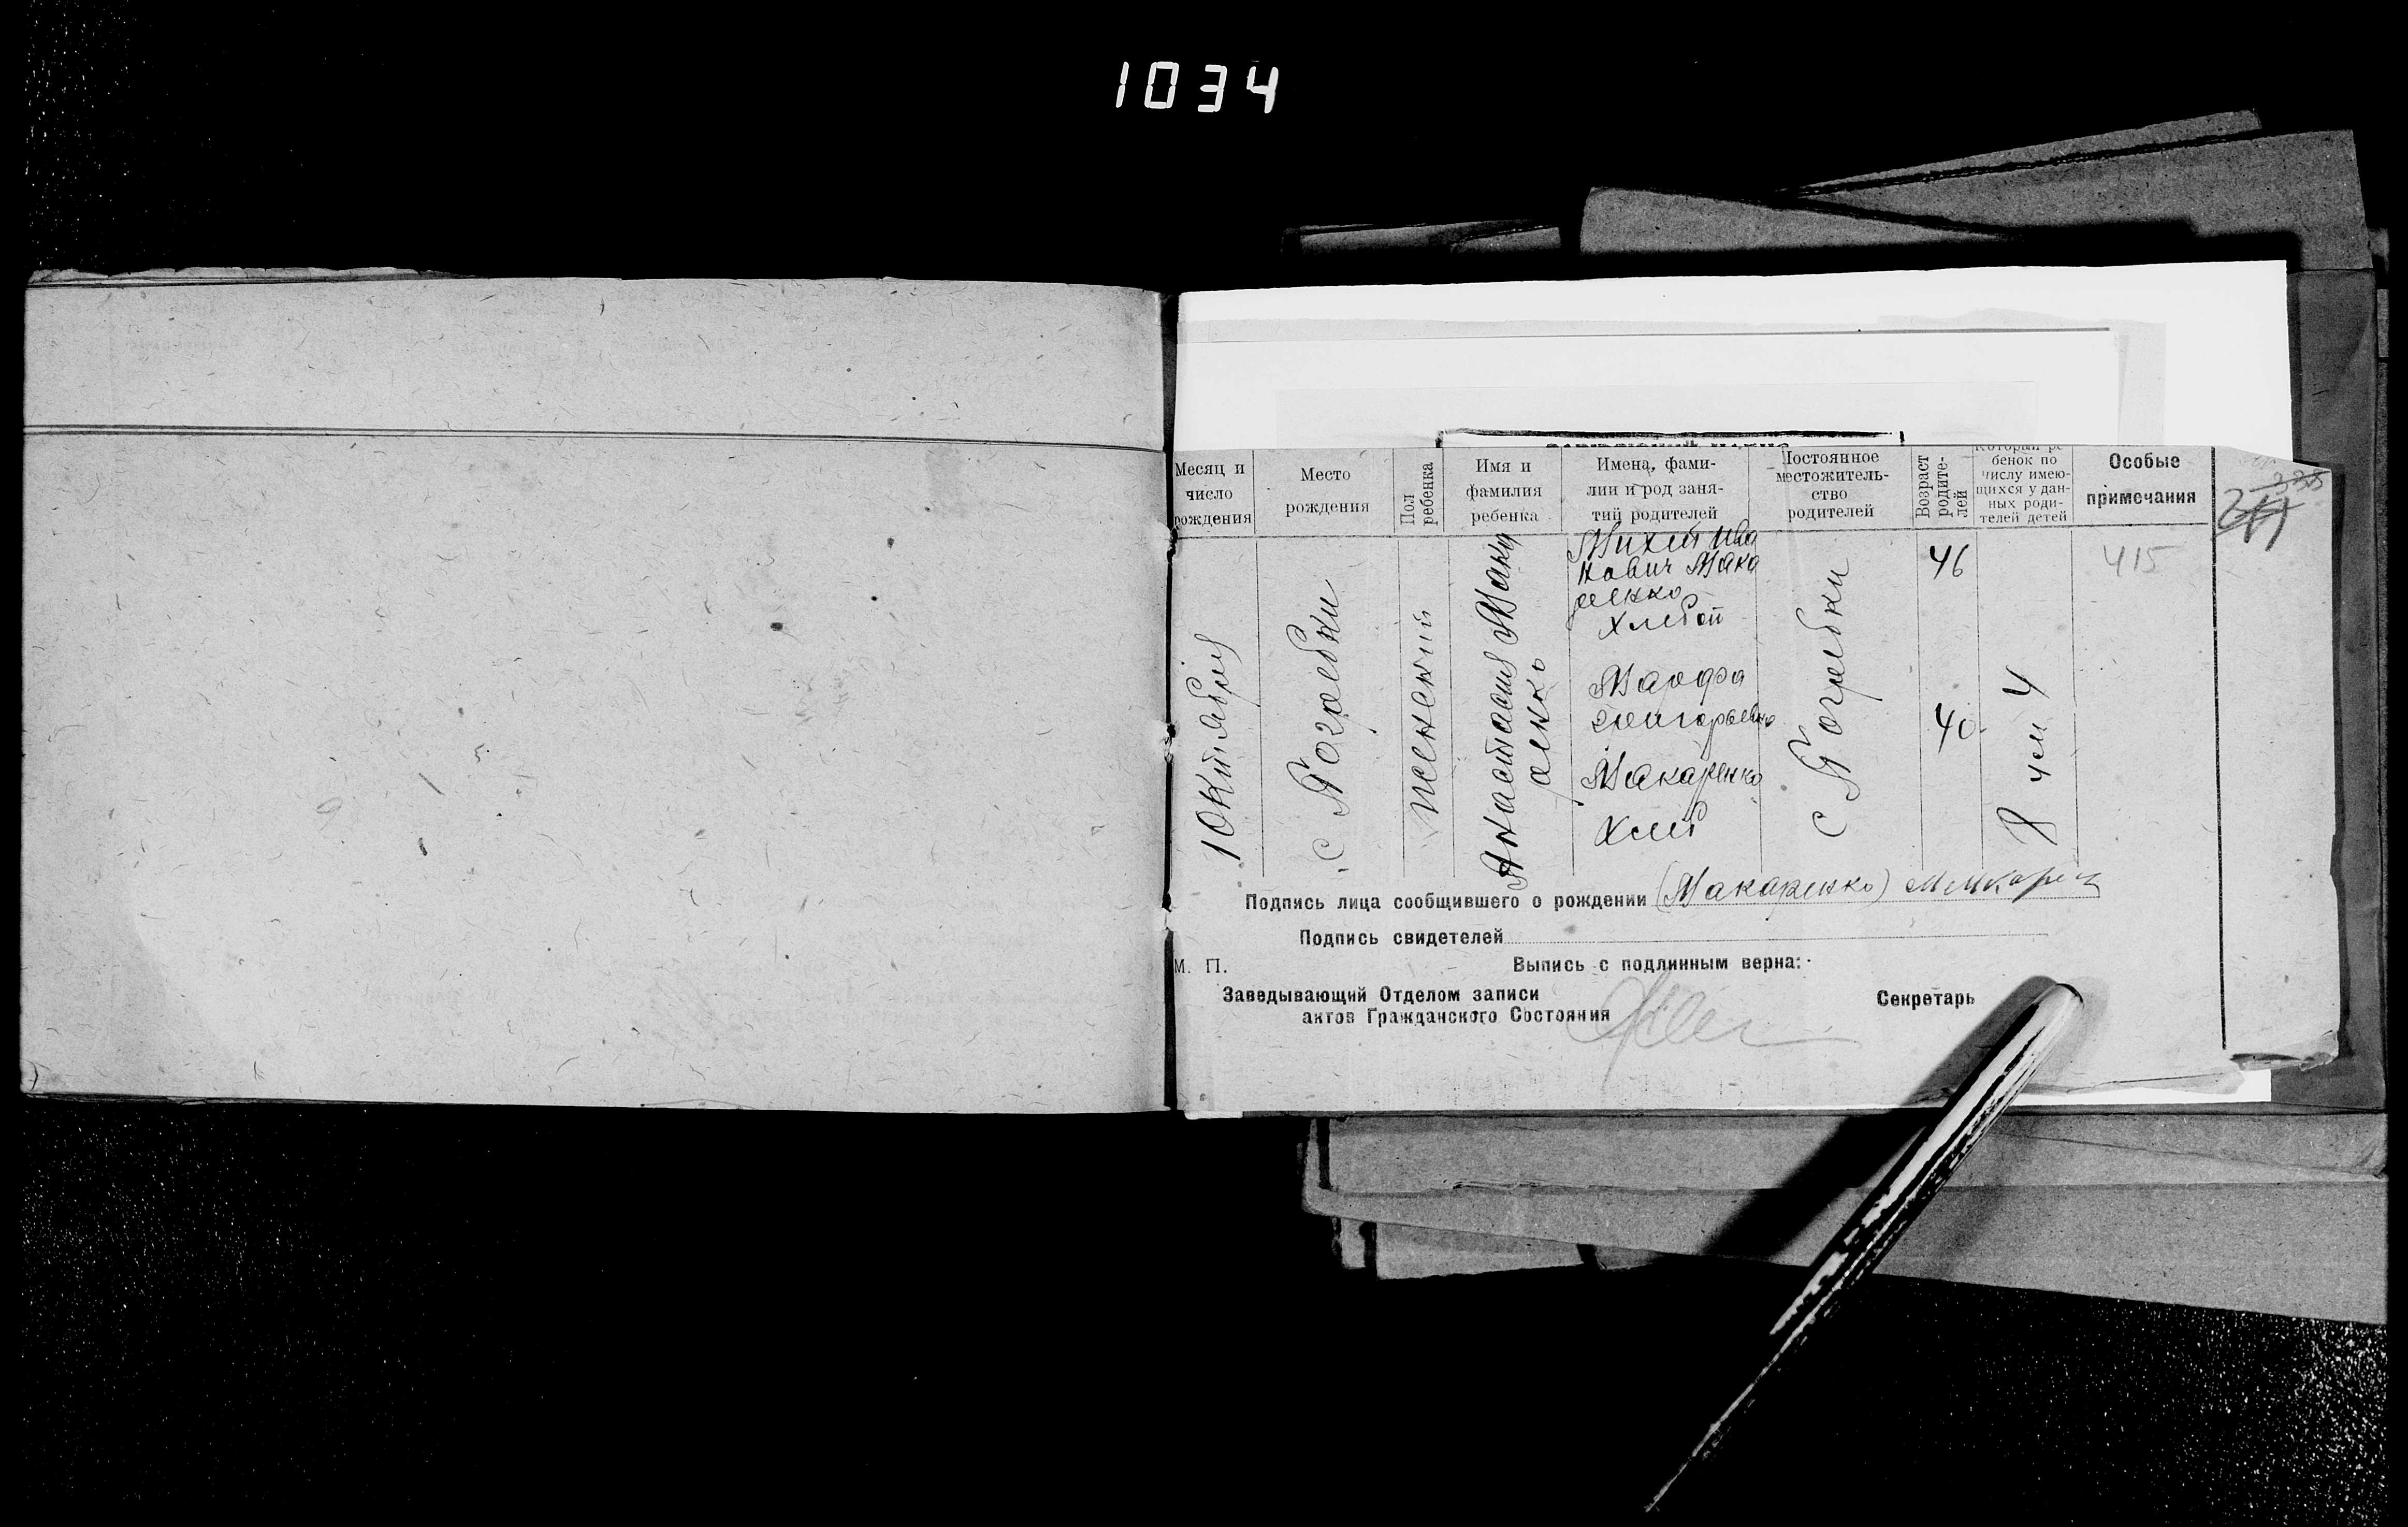 1034
Месяц и
число
рождения
Место
рождения
Пол
ребенка
Имя и
фамилия
ребенка
Имена, фами-
лии и род заня-
тий родителей
Постоянное
местожитель-
ство
родителей
Возраст
родите-
лей
Который ре-
бенок по
числу имею-
щихся у дан-
ных роди-
телей детей
Особые
примечания
1 Октября
с Погребки
женский
Анастасия Мака
ренко
Михей Ива
нович Мака
ренко
Хлебоп
Марфа
Макаренко
Хлеб
с Погребки
46
40
8 ум 4
415
Подпись лица сообщившего о рождении (Макаренко)
Подпись свидетелей
М. П.
Выпись с подлинным верна:
Заведывающий Отделом записи
актов Гражданского Состояния
Секретарь